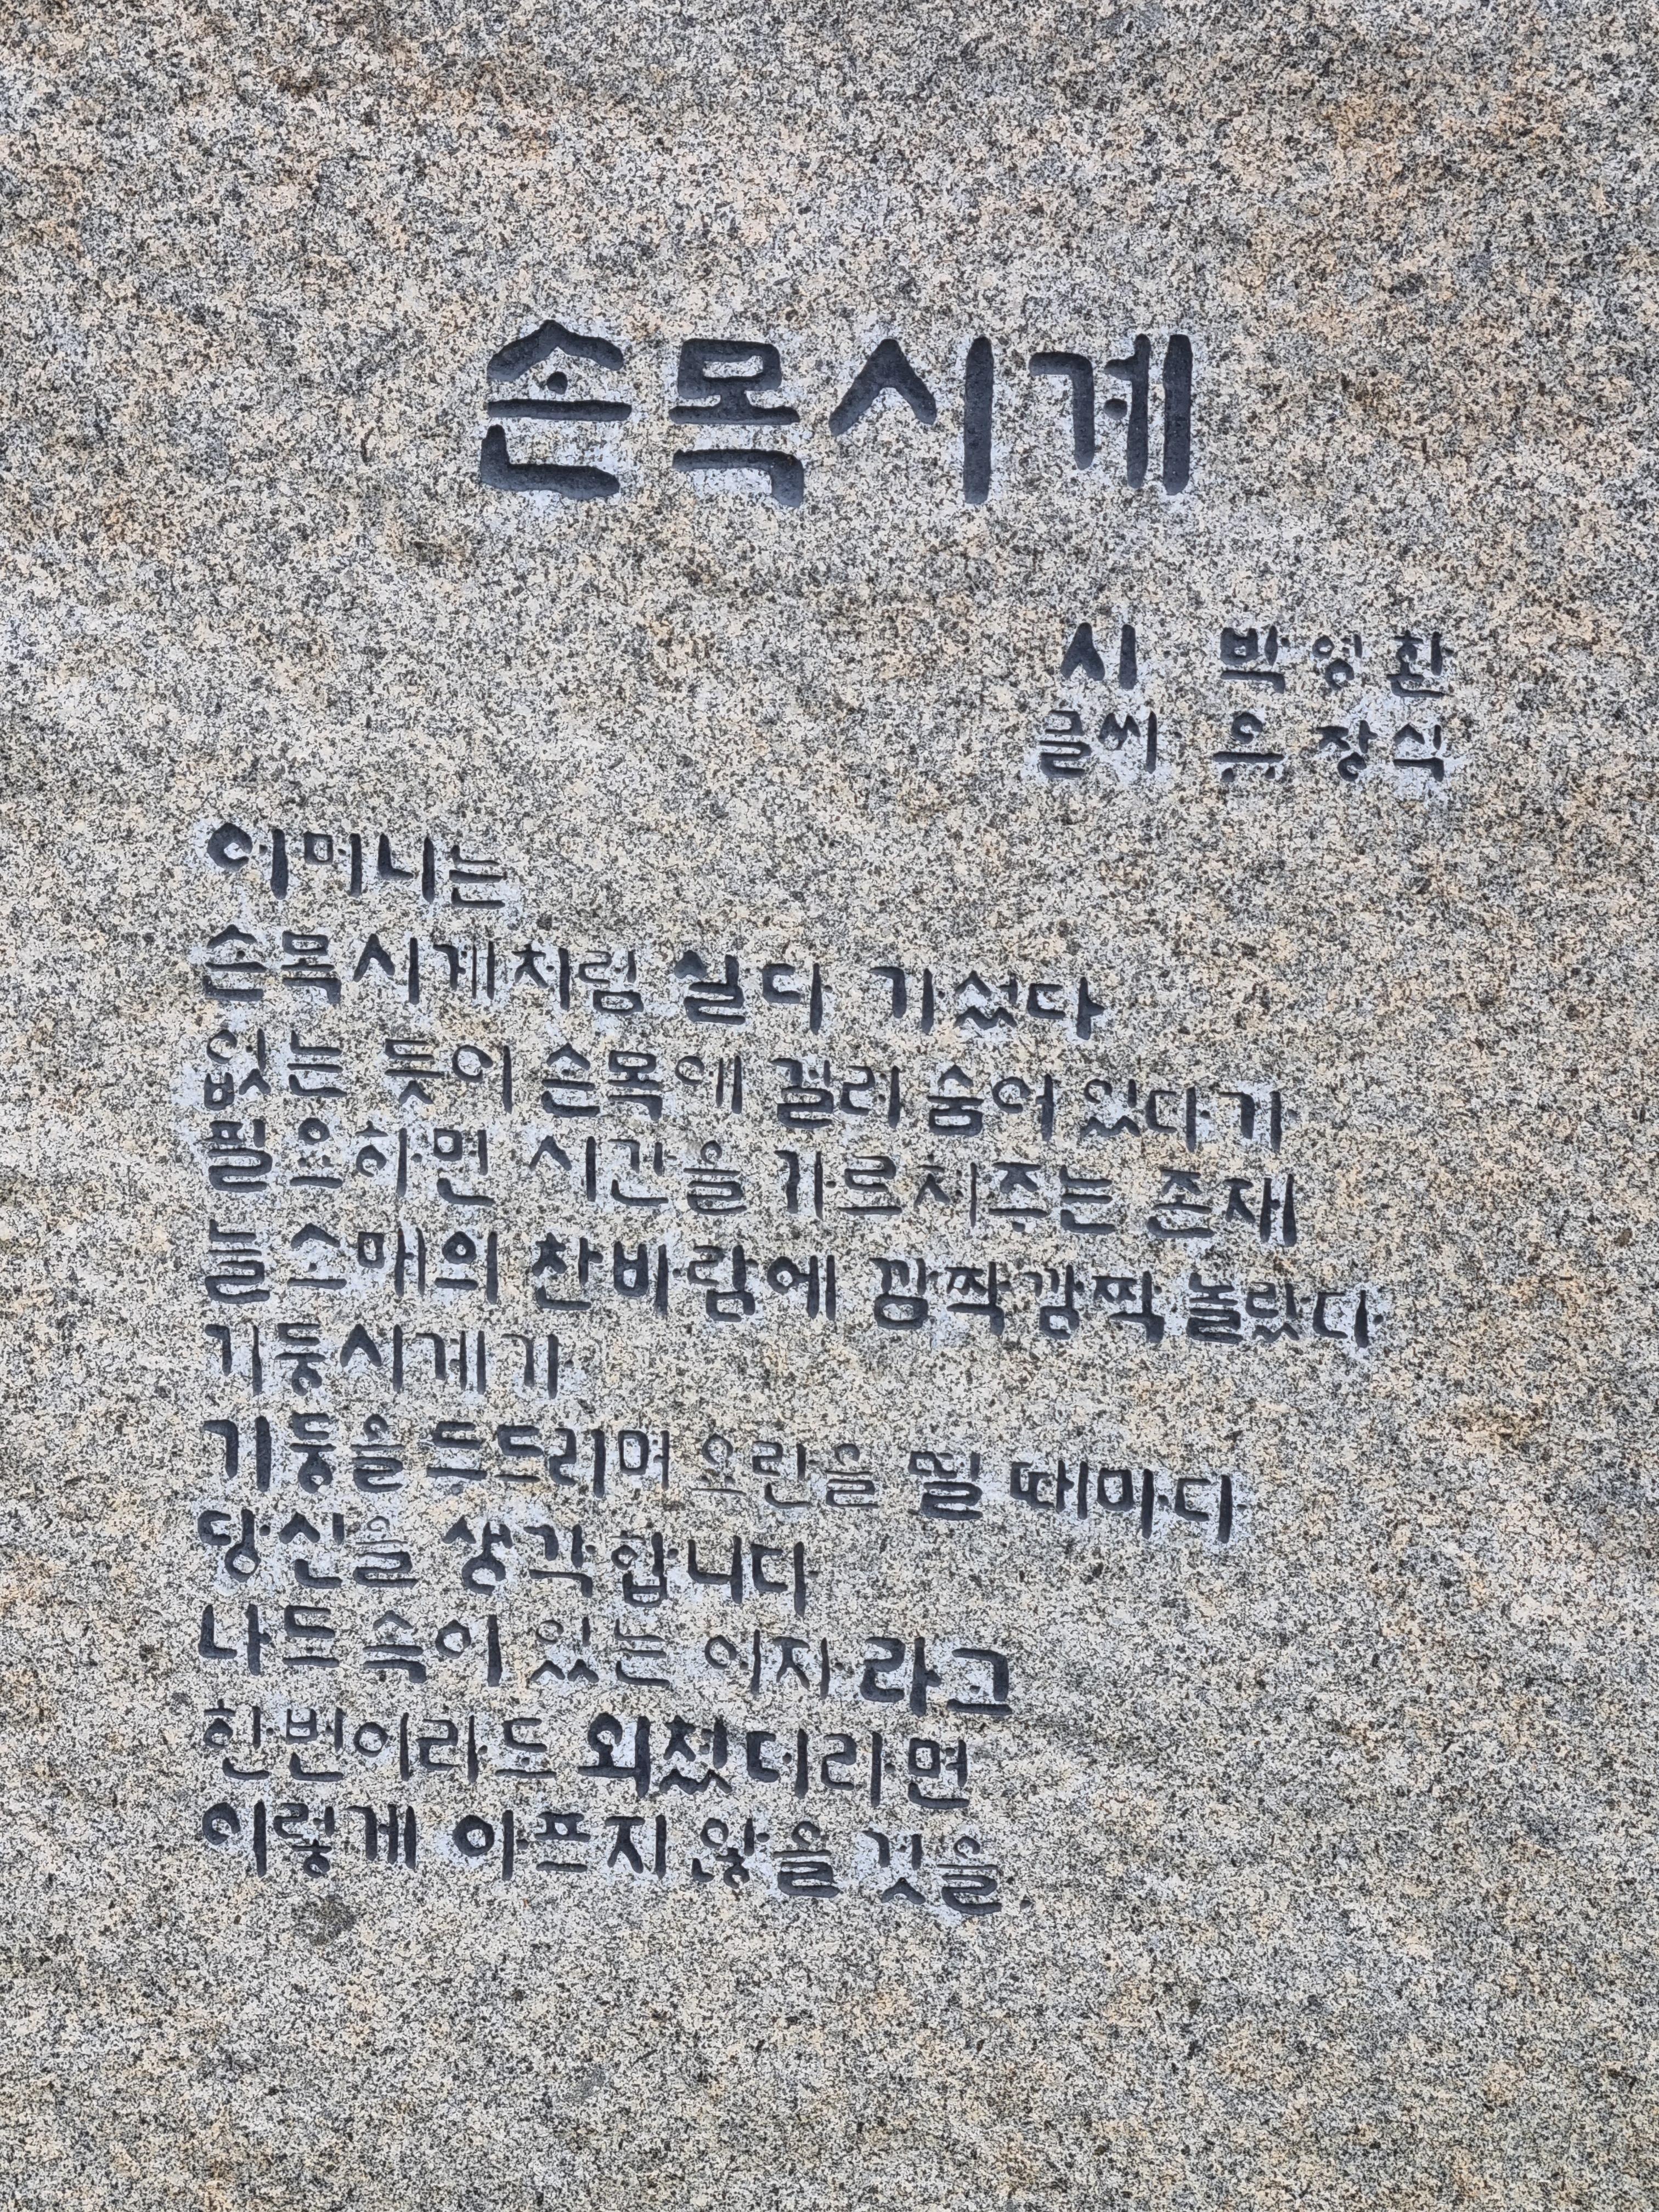 손목시계
시 박영환
글씨 유장식
어머니는
손목시계처럼 실다 가셨다
없는 듯이 손목에 걸려 숨어 있다가
필요하면 시간을 가르쳐주는 존재
늘 소매의 찬바람에 깜짝깜짝 놀랐다
기둥시계가
기둥을 두드리며 오란을 떨 때마다
당신을 생각합니다
나도 속이 있는 여자라고
한번이라도 외쳤더라면
이렇게 아프지 않을 것을